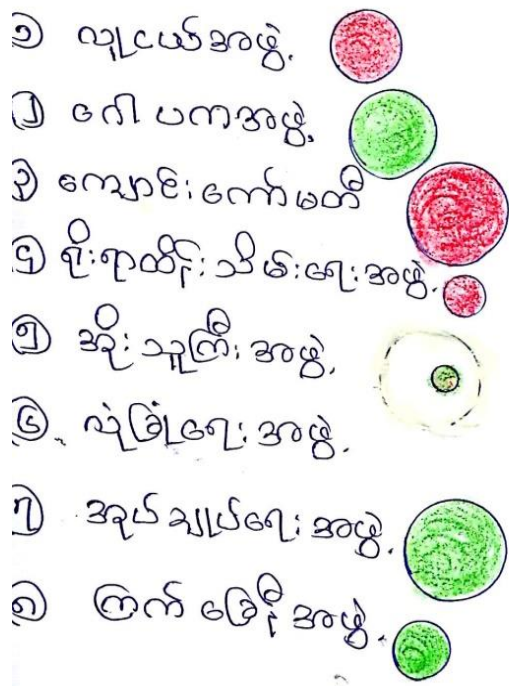 ၁ လူငယ်အဖွဲ့
၂ ဂေါပကအဖွဲ့
၃ ကျောင်းကော်မတီ
၄ ရိုးရာထိန်းသိမ်းရေးအဖွဲ့
၅ အိုးသူကြီးအဖွဲ့
၆ လုံခြုံရေးအဖွဲ့
၇ အုပ်ချုပ်ရေးအဖွဲ့
၈ ကြက်ခြေနီအဖွဲ့